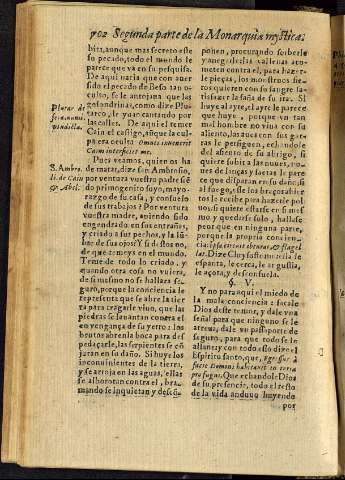 702 Segunda parte de la Monarquia mystica.
bita, aunque mas secreto este
su pecado, todo el mundo le
parece que va en su pesquisa.
De aqui naria que con aver
sido el pecado de Beso tan o-
culto, se le antojava que las
golondrinas, como dize Plu-
tarco, le yvan cantando por
las calles. De aqui el temer
Cain el castigo, aunque la cul-
pa era oculta Omnis invenerit
Caim interficiet me.
Pues veamos, quien os ha
de matar, dize san Ambrosio,
por ventura vuestro padre sien-
do primogenito suyo, mayo-
razgo de su casa, y consuelo
de sus trabajos? Por ventura
vuestra madre, aviendo sido
engendrado en sus entrañas,
y criado a sus pechos, y la
bre de sus ojos? Y si destos no,
de que temeys en el mundo.
Teme de todo lo criado, y
quando otra cosa no viviera,
de si mesmo no se hallara se-
guro, porque la conciencia le
representa que se abre la tier
ra para tragarle vivo, que las
piedras se levantan contra el
en vengança de su yerro: los
brutos abren la boca para des-
pedaçarle, las serpientes se cõ-
juran en su daño. Si huye los
inconvinientes de la tierra,
y se arroja en las aguas, ellas
se alborotan contra el, bra-
mando se inquietan y descõ-
Plutar de
sera numi.
vindicta.
S. Ambro.
li. de Cain
& Abel.
ponen, procurando sorberle
y anegarle: las vallenas ato-
meten contra el, para hazer-
le pieças, los monstruos fie-
ros quieren con su sangre sa-
tisfazer la saña de su ira. Si
huye al ayre, le parece el ayre
que huye, porque vn tan
mal hombre no viva con su
aliento, las aves con sus gar-
gas le persiguen, echandole
del assento de su abrigo, si
quiere subir a las nuves, ru-
zes de lanças y saetas le pare
ce que disparan en su daño, si
al fuego, esse los braços abier
tos le recibe para hazerle pol-
vos, si quiere estarse en si mes-
mo y quedirse solo, hallase
peor que en ninguna parte,
porque la propria concien-
cia:
ta. Dize Chrysostomo ella le
espanta, le cerca, le angustia,
le açota, y de si consuela.
§. V.
Y no para aqui el miedo de
la mala conciencia: sacale
Dios deste temor, y dale vna
señal para que ninguno se le
atreva, dale vn passaporte de
seguro, para que todo se le
allane: y con todo esso dize el
Espiritu santo, que,
facie Domini habitavit in terra
profugus. Que echandole Dios
de su presencia, todo el resto
de la vida anduvo huyendo
por